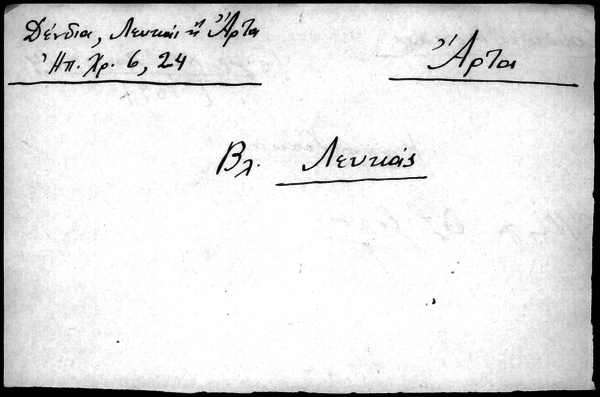 Δένδια, Λευκὰς ἢ Ἄρτα
Ἠπ. Χρ. 6, 24
Ἄρτα
Βλ. Λευκάς